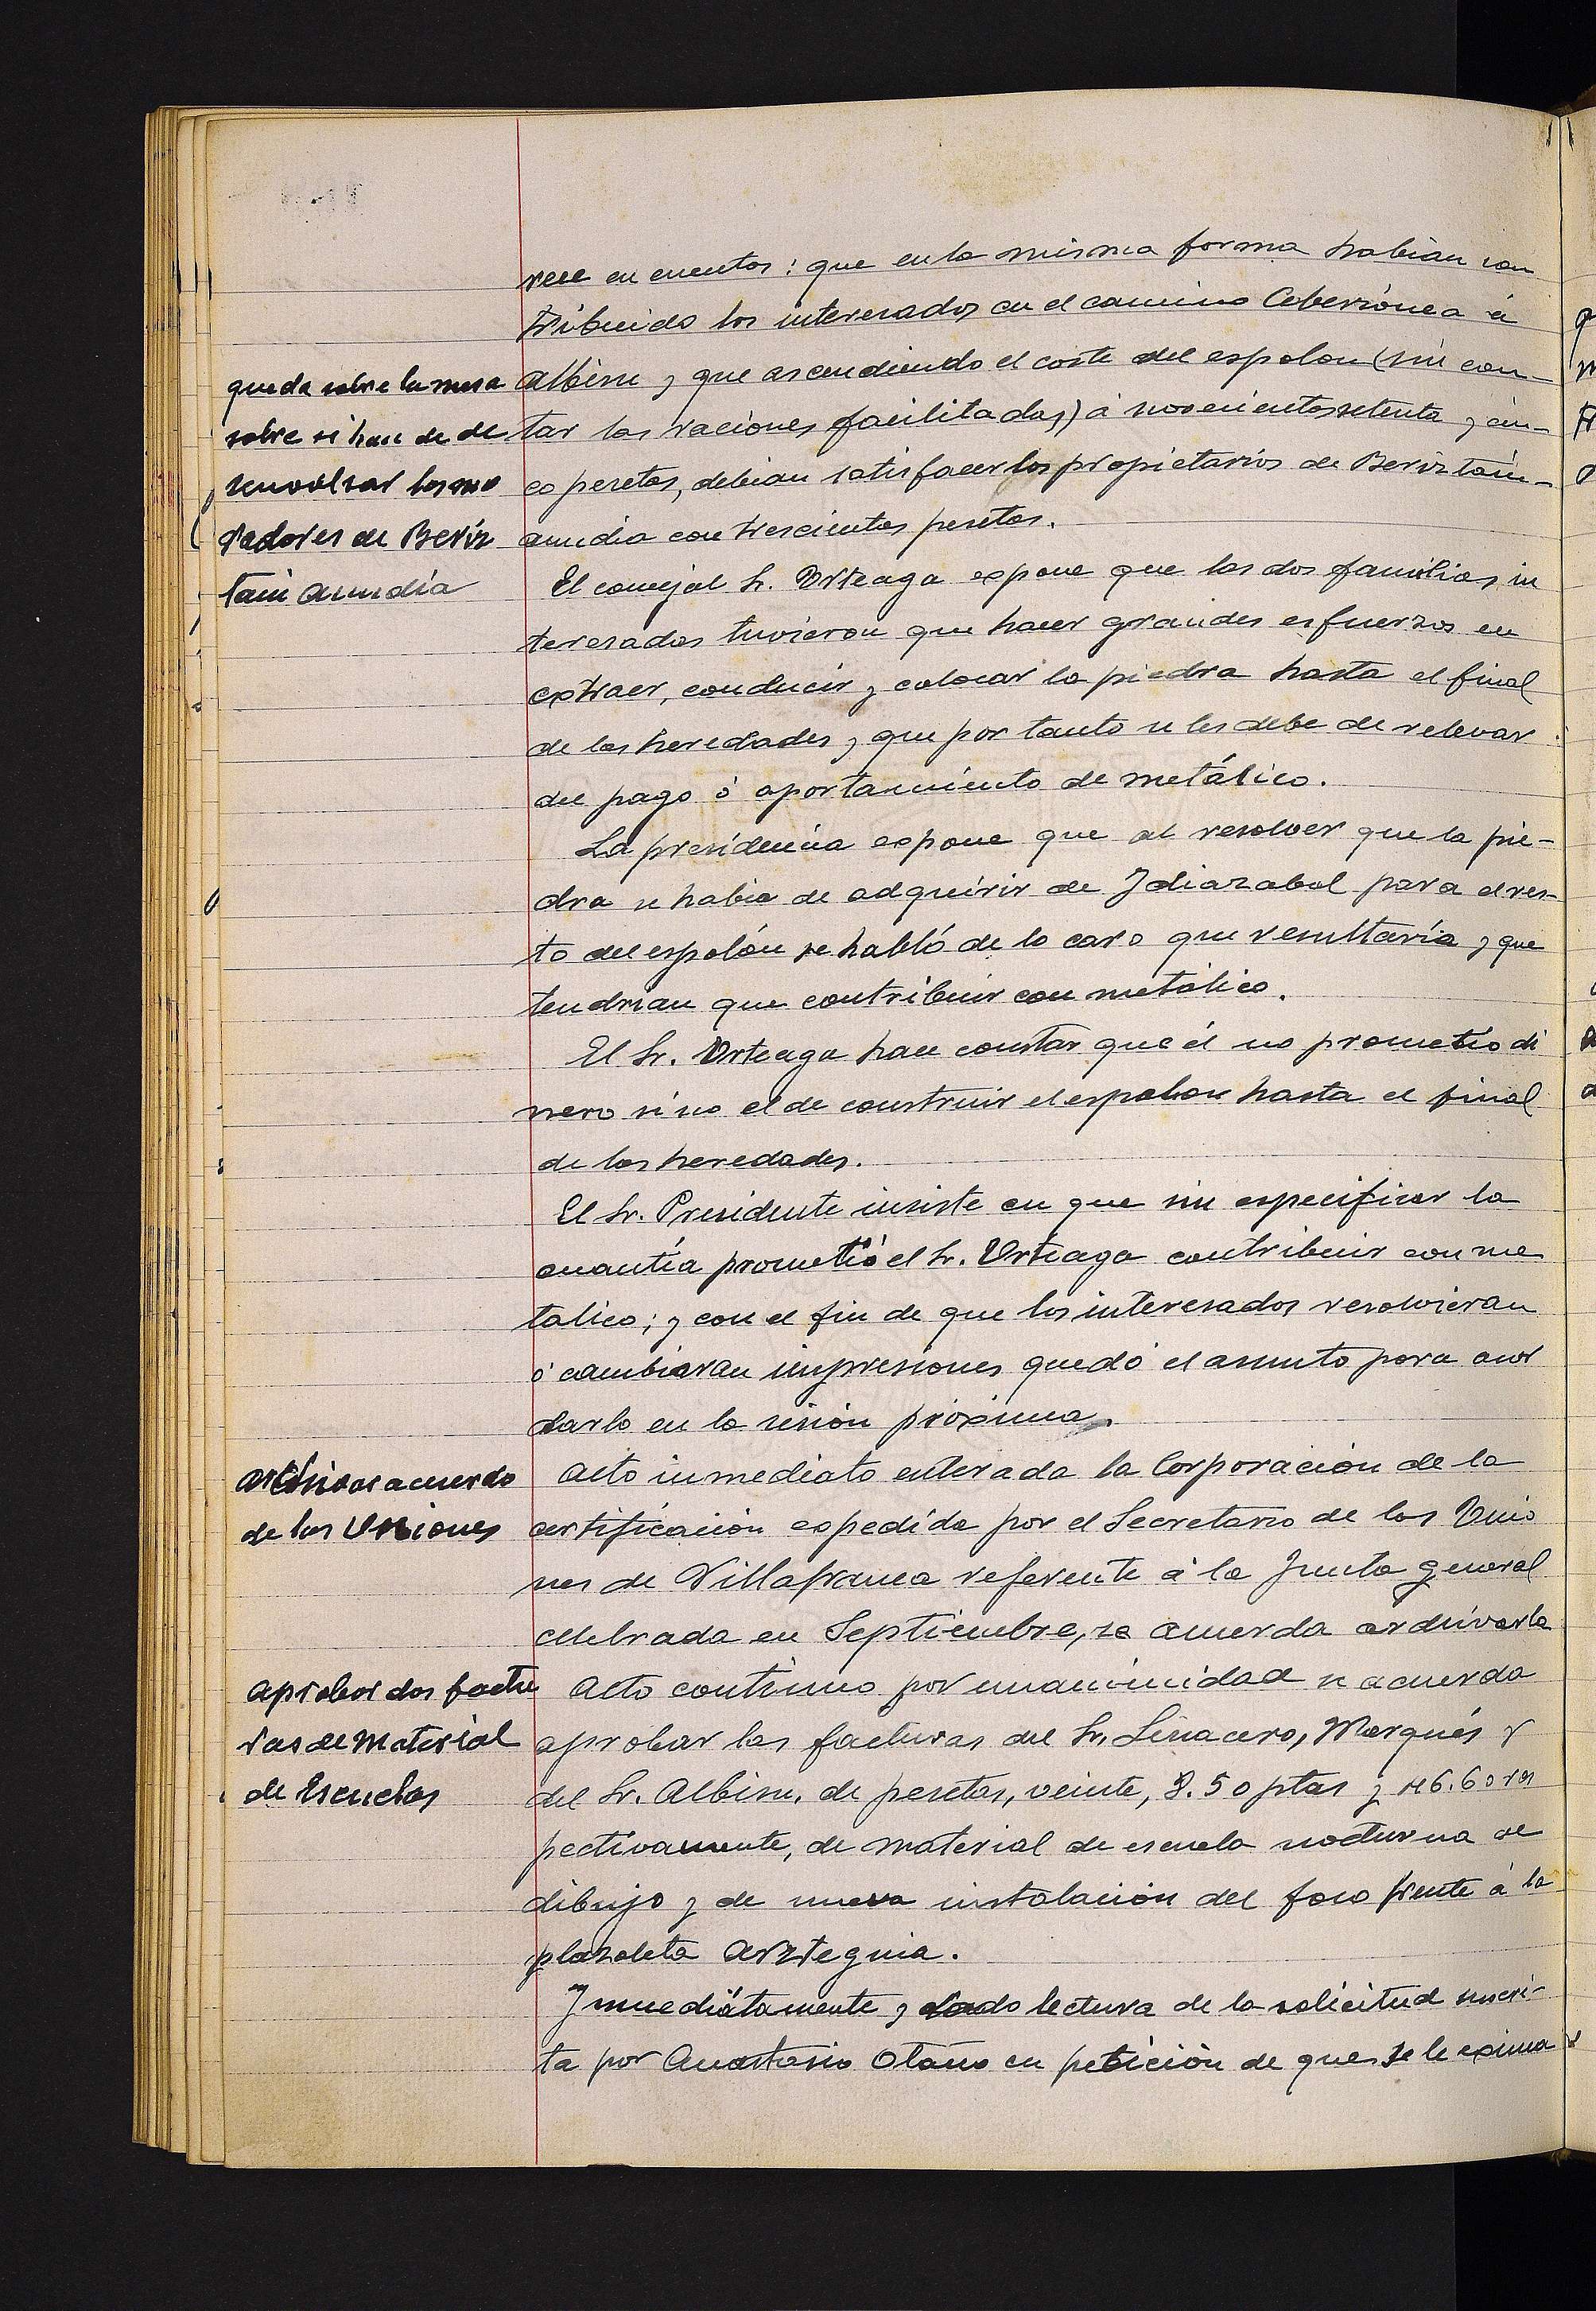 rese en cuentas: que en la misma forma habian con
tribuido los interesados en el camino Ceberiónea á
Albisu y que ascendiendo el coste del espolon (sin con-
tar las raciones facilitadas) á novecientos setenta y cin-
co pesetas, debian satisfacer los propietarios de Beriztain-
aundia con trescientas pesetas.
queda sobre la mesa
sobre si han de de
senvolsar los mo
radores de Beriz
tain aundia
El concejal Sr. Urteaga expone que las dos familias in
teresadas tuvieron que hacer grandes esfuerzos en
extraer, conducir y colocar la piedra hasta el final
de las heredades y que por tanto se les debe de relevar
del pago ó aportamiento de metálico.
La presidencia expone que al resolver que la pie-
dra se habia de adquirir de Idiazabal para el res-
to del espolón se habló de lo caro que resultaría y que
tendrian que contribuir con metálico.
El Sr. Urteaga hace constar que él no prometio di
nero sino el de construir el espolon hasta el final
de las heredades.
El Sr. Presidente insiste en que sin especificar la
cuantía prometió el Sr. Urteaga contribuir con me
talico; y con el fin de que los interesados resolvieran
ó cambiaran impresiones quedó el asunto para acor
darlo en la sesión próxima.
archivar acuerdo
de las Uniones
Acto inmediato enterada la Corporación de la
certificación expedida por el Secretario de las Unio
nes de Villafranca referente á la Junta general
celebrada en Septiembre, se acuerda archivarla
aprobar dos factu
ras de material
de Escuelas
Acto continuo por unanimidad se acuerda
aprobar las facturas del Sr. Linacero, Marqués y
del Sr. Albisu, de pesetas, veinte, 8.50 ptas y 6.60 res
pectivamente, de material de escuela nocturna de
dibujo y de nueva instalación del foco frente á la
plazoleta Arzteguia.
Inmediátamente y dado lectura de la solicitud suscri-
ta por Anastasio Otaño en petición de que se le exima